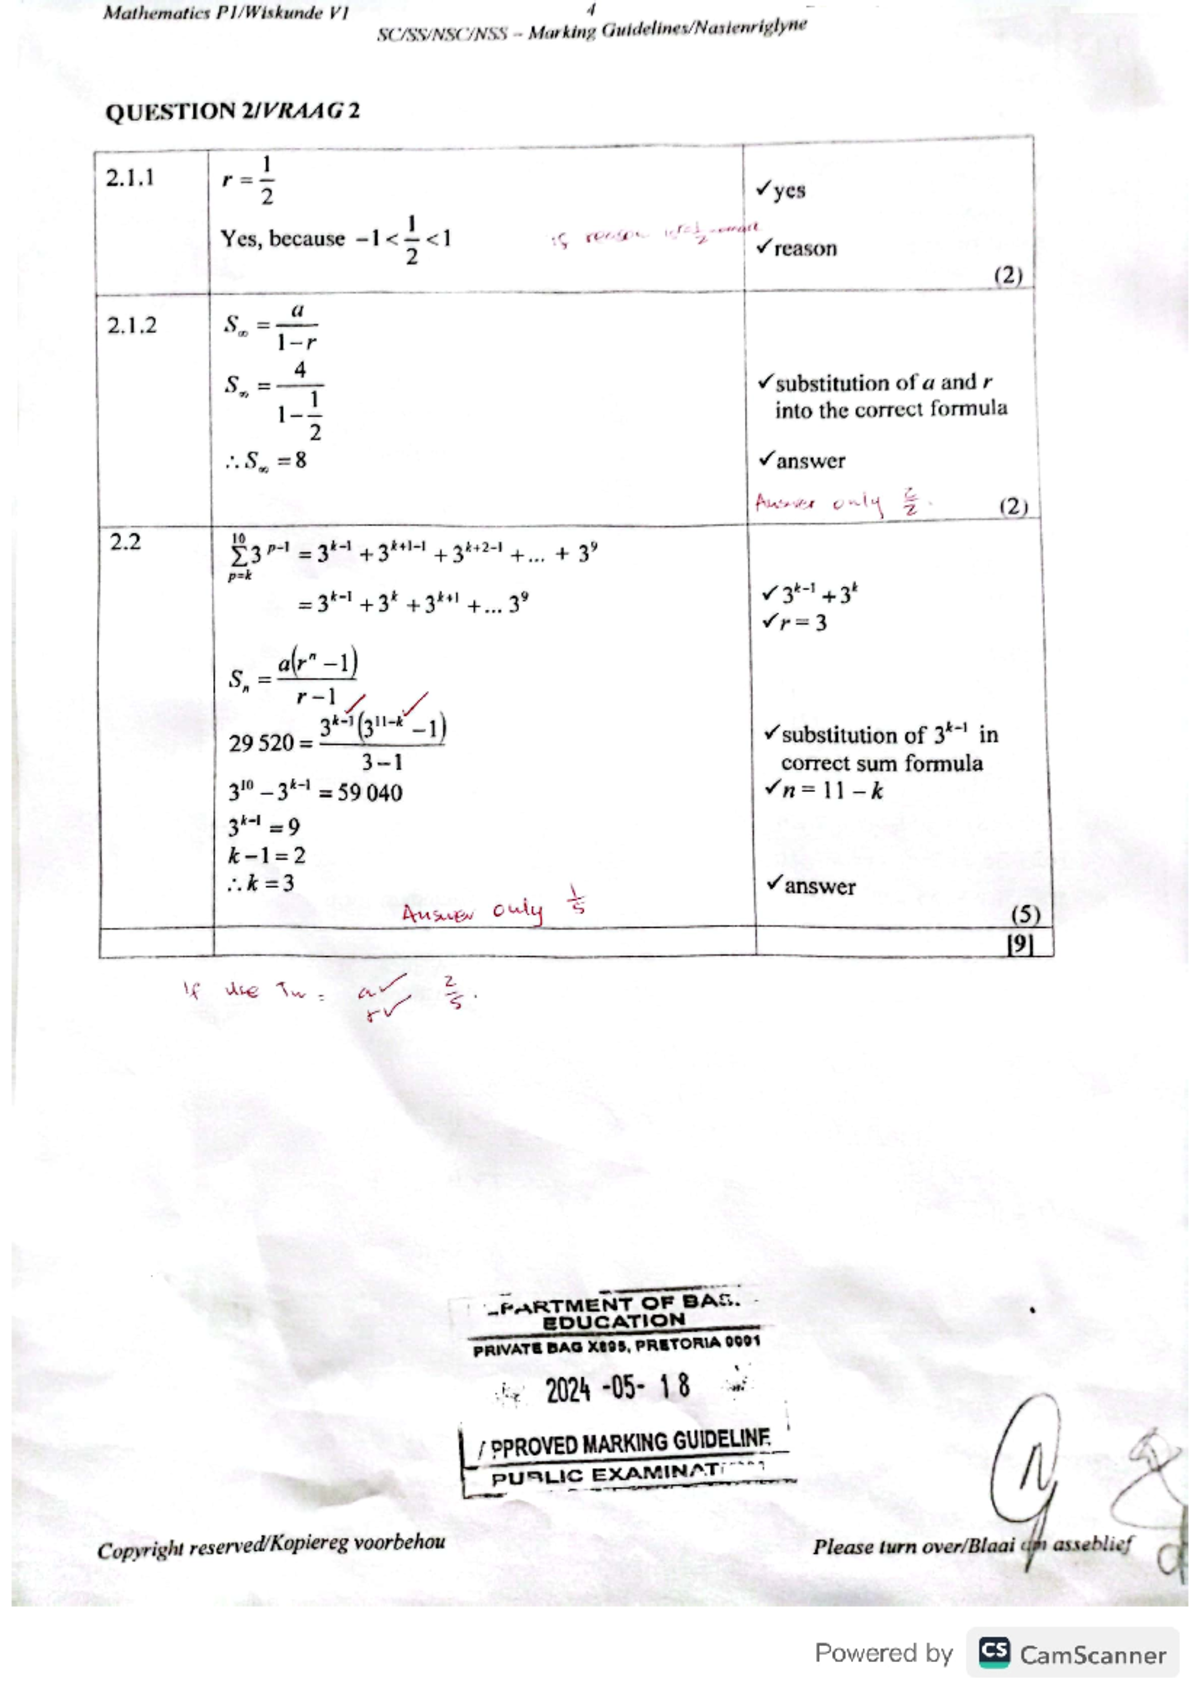 Mathematics P1/Wiskunde V1
4
SC/SS/NSC/NSS – Marking Guidelines/Nasienriglyne
QUESTION 2/VRAAG 2
2.1.1
r = 1/2
Yes, because −1 < 1/2 < 1
is reason
✓yes
✓reason
(2)
2.1.2
S∞ = a/(1−r)
S∞ = 4/(1−1/2)
∴ S∞ = 8
✓substitution of a and r
into the correct formula
✓answer
Answer only 2/2.
(2)
2.2
10
Σ 3^(p−1) = 3^(k−1) + 3^(k+1−1) + 3^(k+2−1) + ... + 3^9
p=k
= 3^(k−1) + 3^k + 3^(k+1) + ... 3^9
Sn = a(r^n −1)/(r−1)
29 520 = 3^(k−1)(3^(11−k) −1)/(3−1)
3^10 − 3^(k−1) = 59 040
3^(k−1) = 9
k − 1 = 2
∴ k = 3
Answer only 1/5
✓ 3^(k−1) + 3^k
✓ r = 3
✓ substitution of 3^(k−1) in
correct sum formula
✓ n = 11 − k
✓ answer
(5)
[9]
If use Tn = a✓ 2/5.
r✓
PARTMENT OF BAS.
EDUCATION
PRIVATE BAG X895, PRETORIA 0001
2024 -05- 18
PPROVED MARKING GUIDELINE
PUBLIC EXAMINAT
Copyright reserved/Kopiereg voorbehou
Please turn over/Blaai om asseblief
Powered by CS CamScanner